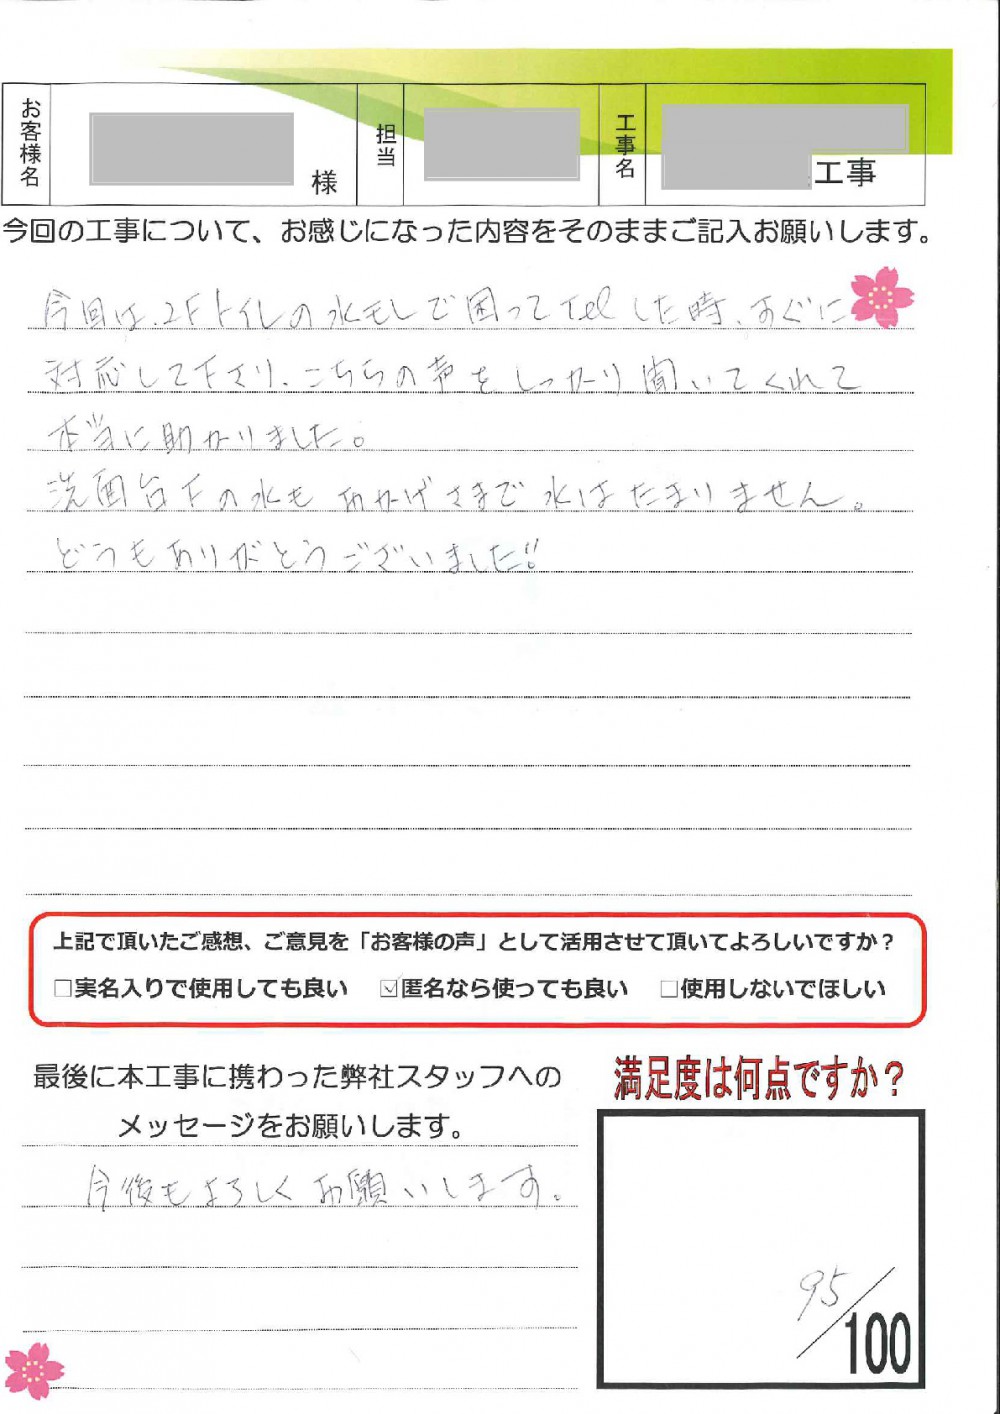 お客様名
様
担当
工事名
工事
今回の工事について、お感じになった内容をそのままご記入お願いします。
今回は、2Fトイレの水モレで困ってTelした時、すぐに
対応して下さり、こちらの声をしっかり聞いてくれて
本当に助かりました。
洗面台下の水もおかげさまで水はたまりません。
どうもありがとうございました!!
上記で頂いたご感想、ご意見を「お客様の声」として活用させて頂いてよろしいですか?
□実名入りで使用しても良い ☑匿名なら使っても良い □使用しないでほしい
最後に本工事に携わった弊社スタッフへの
メッセージをお願いします。
今後もよろしくお願いします。
満足度は何点ですか?
95/100